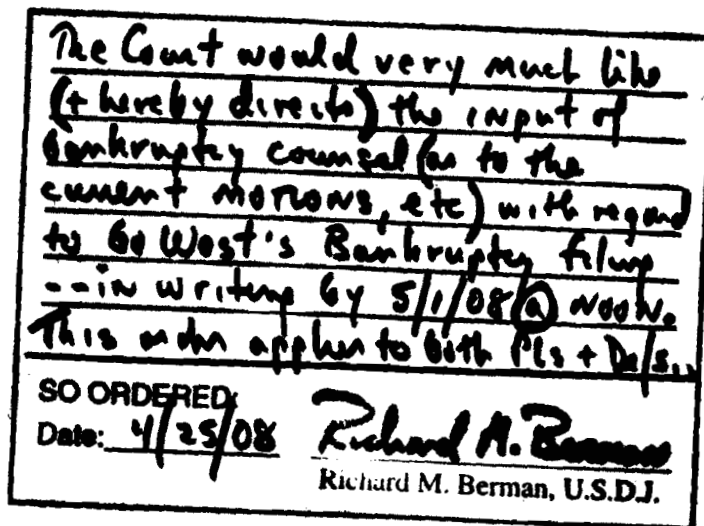 The Court would very much like
(+ hereby directs) the input of
Bankruptcy counsel (as to the
current motions, etc) with regard
to Go West's Bankruptcy filing
-- in writing by 5/1/08 @ noon.
This order applies to both Pls + Defs..
SO ORDERED:
Date: 4/25/08
Richard M. Berman
Richard M. Berman, U.S.D.J.